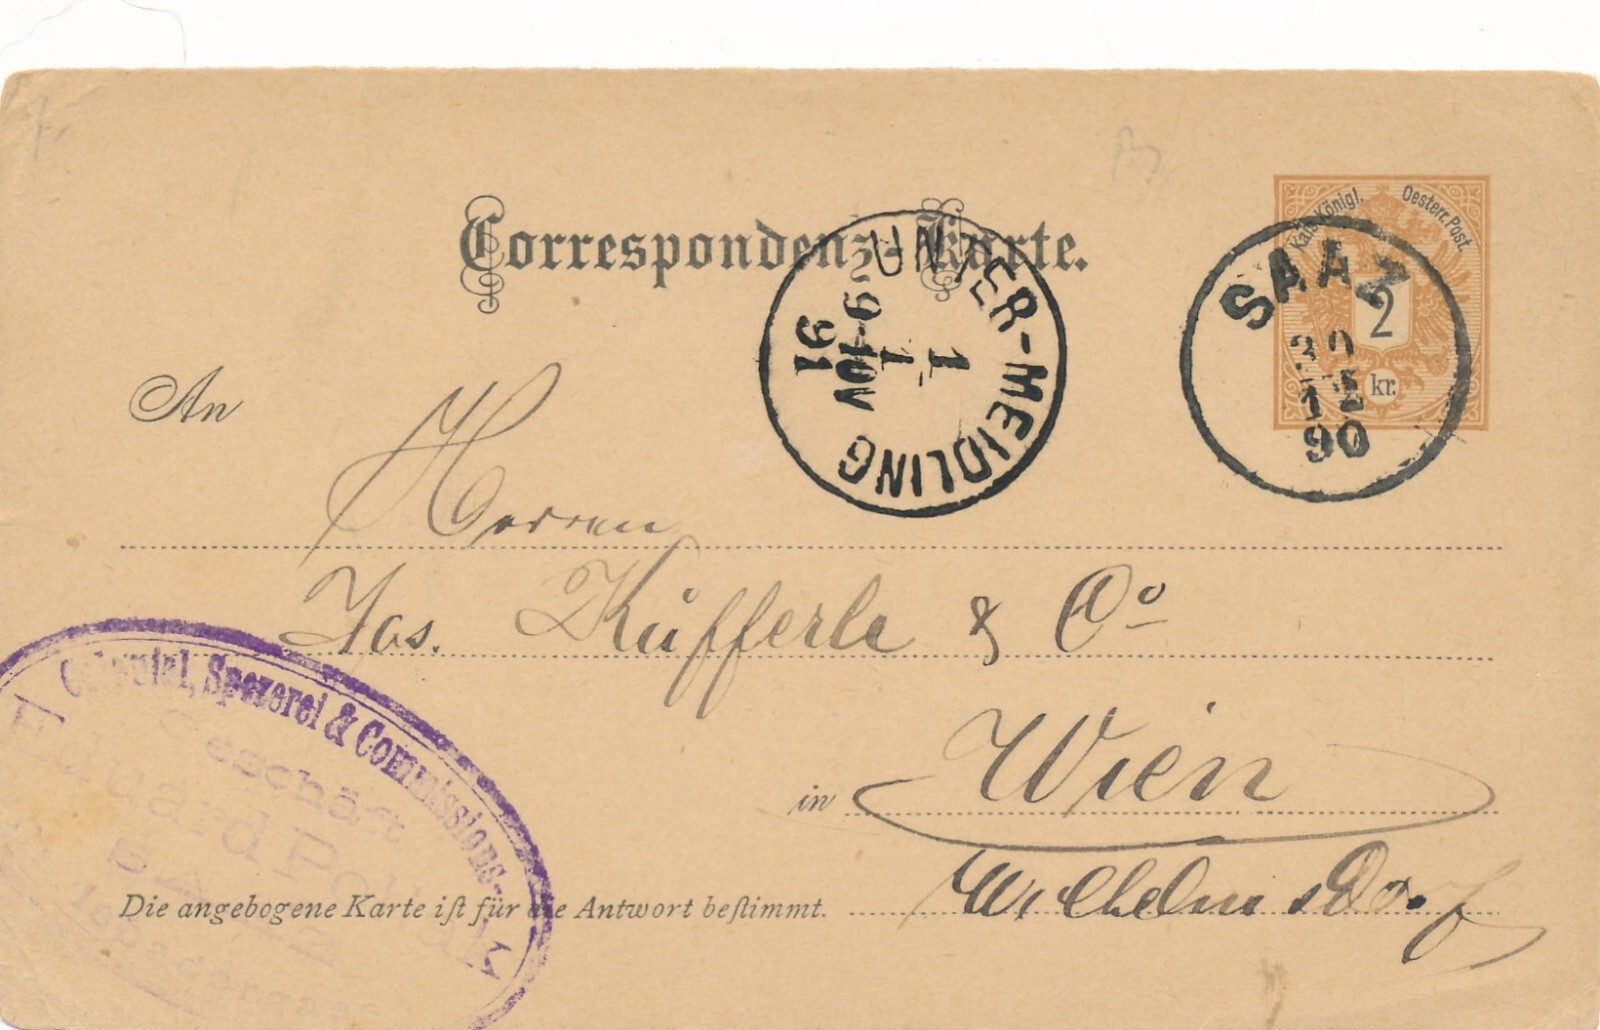 Correspondenz-Karte.
Kais. Königl. Oesterr. Post.
2
kr.
SAAZ
30
12
90
UNTER-MEIDLING
1
1
91
An
Herren
Jos. Küfferle & Co
in Wien
Wilhelmsdorf
Die angebogene Karte iſt für die Antwort beſtimmt.
Colonial, Spezerei & Commissions-
Geschäft
Eduard Pollak
SAAZ